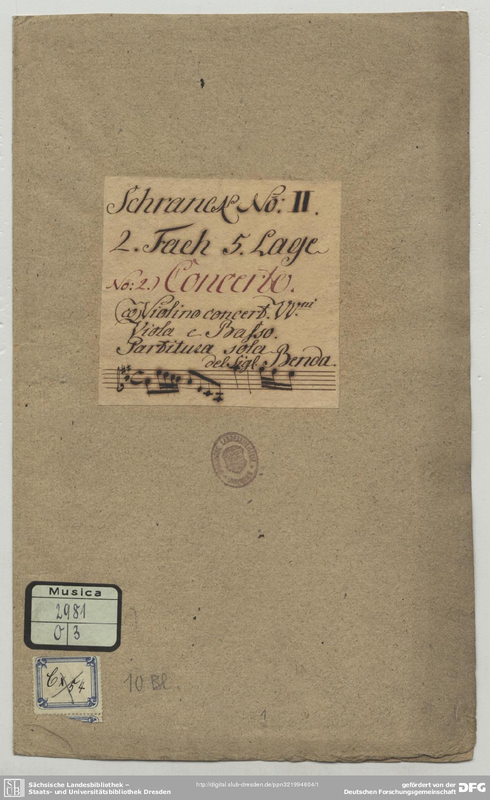 Schranck No: II.
2. Fach 5. Lage
No: 2.) Concerto.
co Violino concert. VVni
Viola e Basso.
Partitura sola
del Sigl. Benda.
Musica
2981
O/3
10 Bl.
1
Sächsische Landesbibliothek –
Staats- und Universitätsbibliothek Dresden
http://digital.slub-dresden.de/ppn321994804/1
gefördert von der
Deutschen Forschungsgemeinschaft
DFG